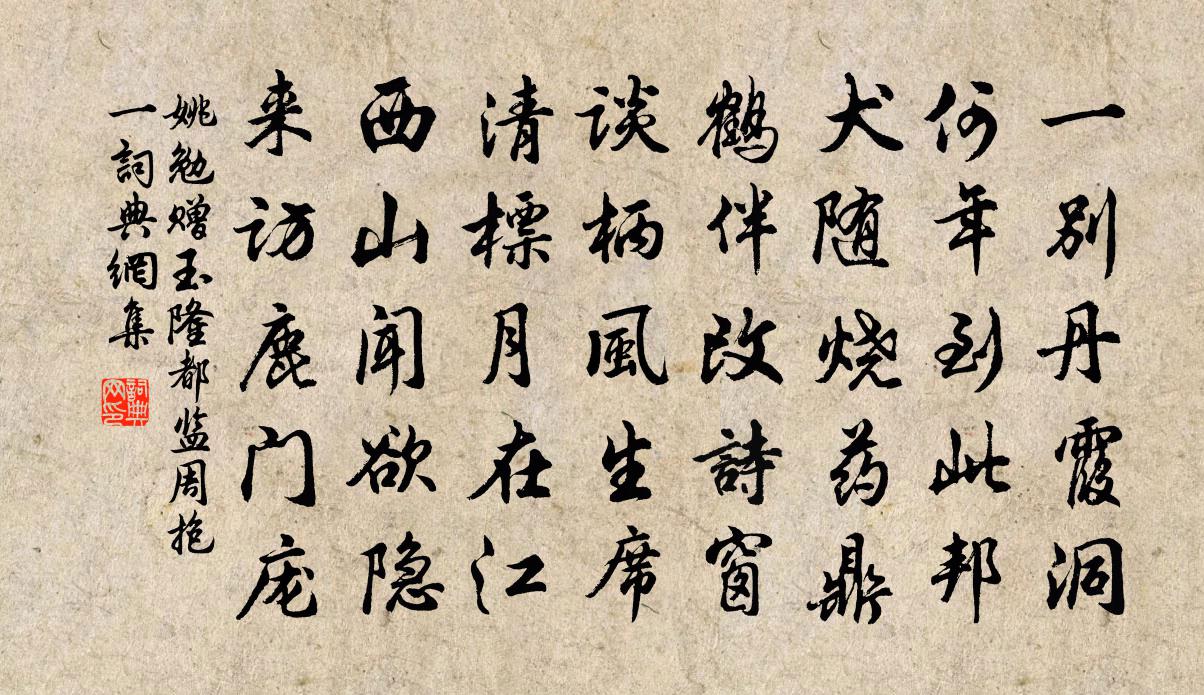 一别丹霞洞
何年到此邦
犬随烧药鼎
鶴伴改詩窗
谈柄風生席
清標月在江
西山闻欲隐
来访鹿门庞
姚勉赠玉隆都监周抱
一詞典網集
詞典网印